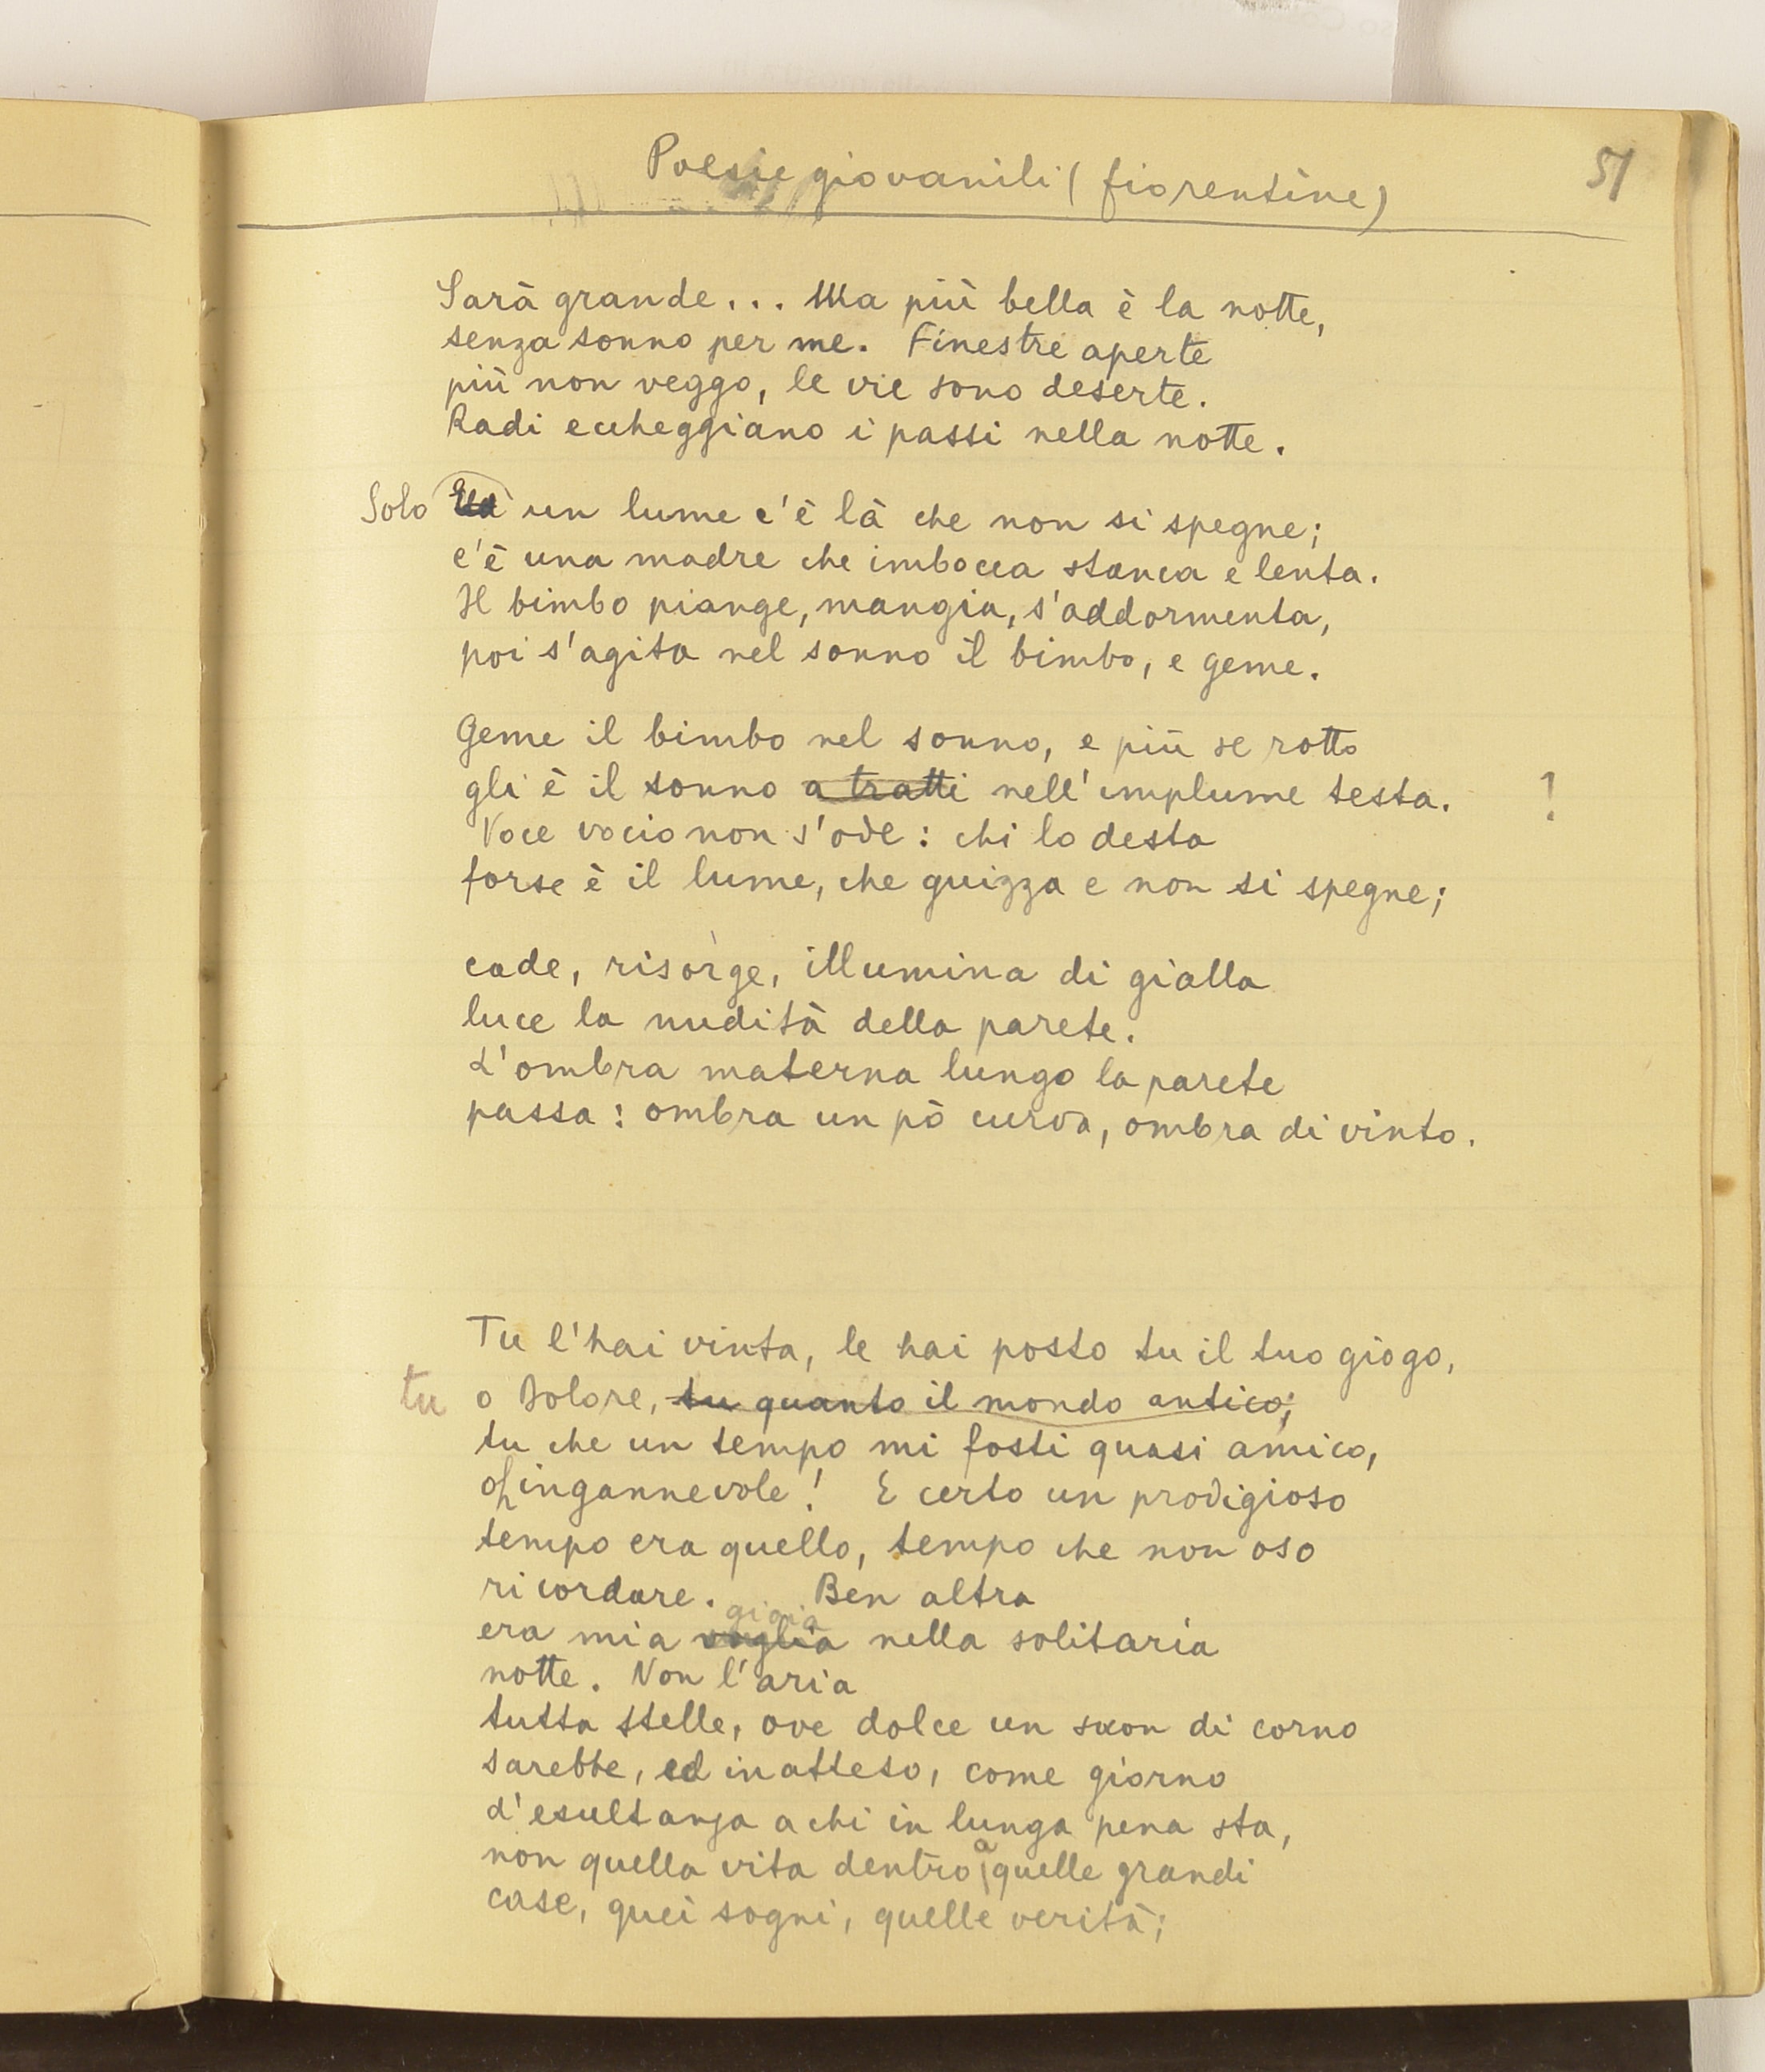 Poesie giovanili (fiorentine)
51
Sarà grande... Ma più bella è la notte,
senza sonno per me. Finestre aperte
più non veggo, le vie sono deserte.
Radi echeggiano i passi nella notte.
Solo un lume c'è là che non si spegne;
c'è una madre che imbocca stanca e lenta.
Il bimbo piange, mangia, s'addormenta,
poi s'agita nel sonno il bimbo, e geme.
Geme il bimbo nel sonno, e più se rotto
gli è il sonno a tratti nell'implume testa. !
Voce vocio non s'ode: chi lo desta
forse è il lume, che guizza e non si spegne;
cade, risorge, illumina di gialla
luce la nudità della parete.
L'ombra materna lungo la parete
passa: ombra un pò curva, ombra di vinto.
Tu l'hai vinta, le hai posto tu il tuo giogo,
tu o Dolore, tu quanto il mondo antico;
tu che un tempo mi fosti quasi amico,
oh ingannevole! E certo un prodigioso
tempo era quello, tempo che non oso
ricordare. Ben altra
gioia
era mia voglia nella solitaria
notte. Non l'aria
tutta stelle, ove dolce un suon di corno
sarebbe, ed inatteso, come giorno
d'esultanza a chi in lunga pena sta,
non quella vita dentro a quelle grandi
case, quei sogni, quelle verità;